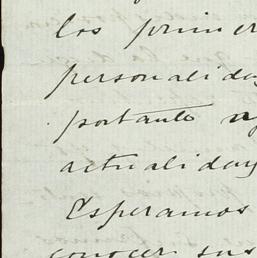 los primer
personalidad
portante
actualidad
Esperamos
conocer sus